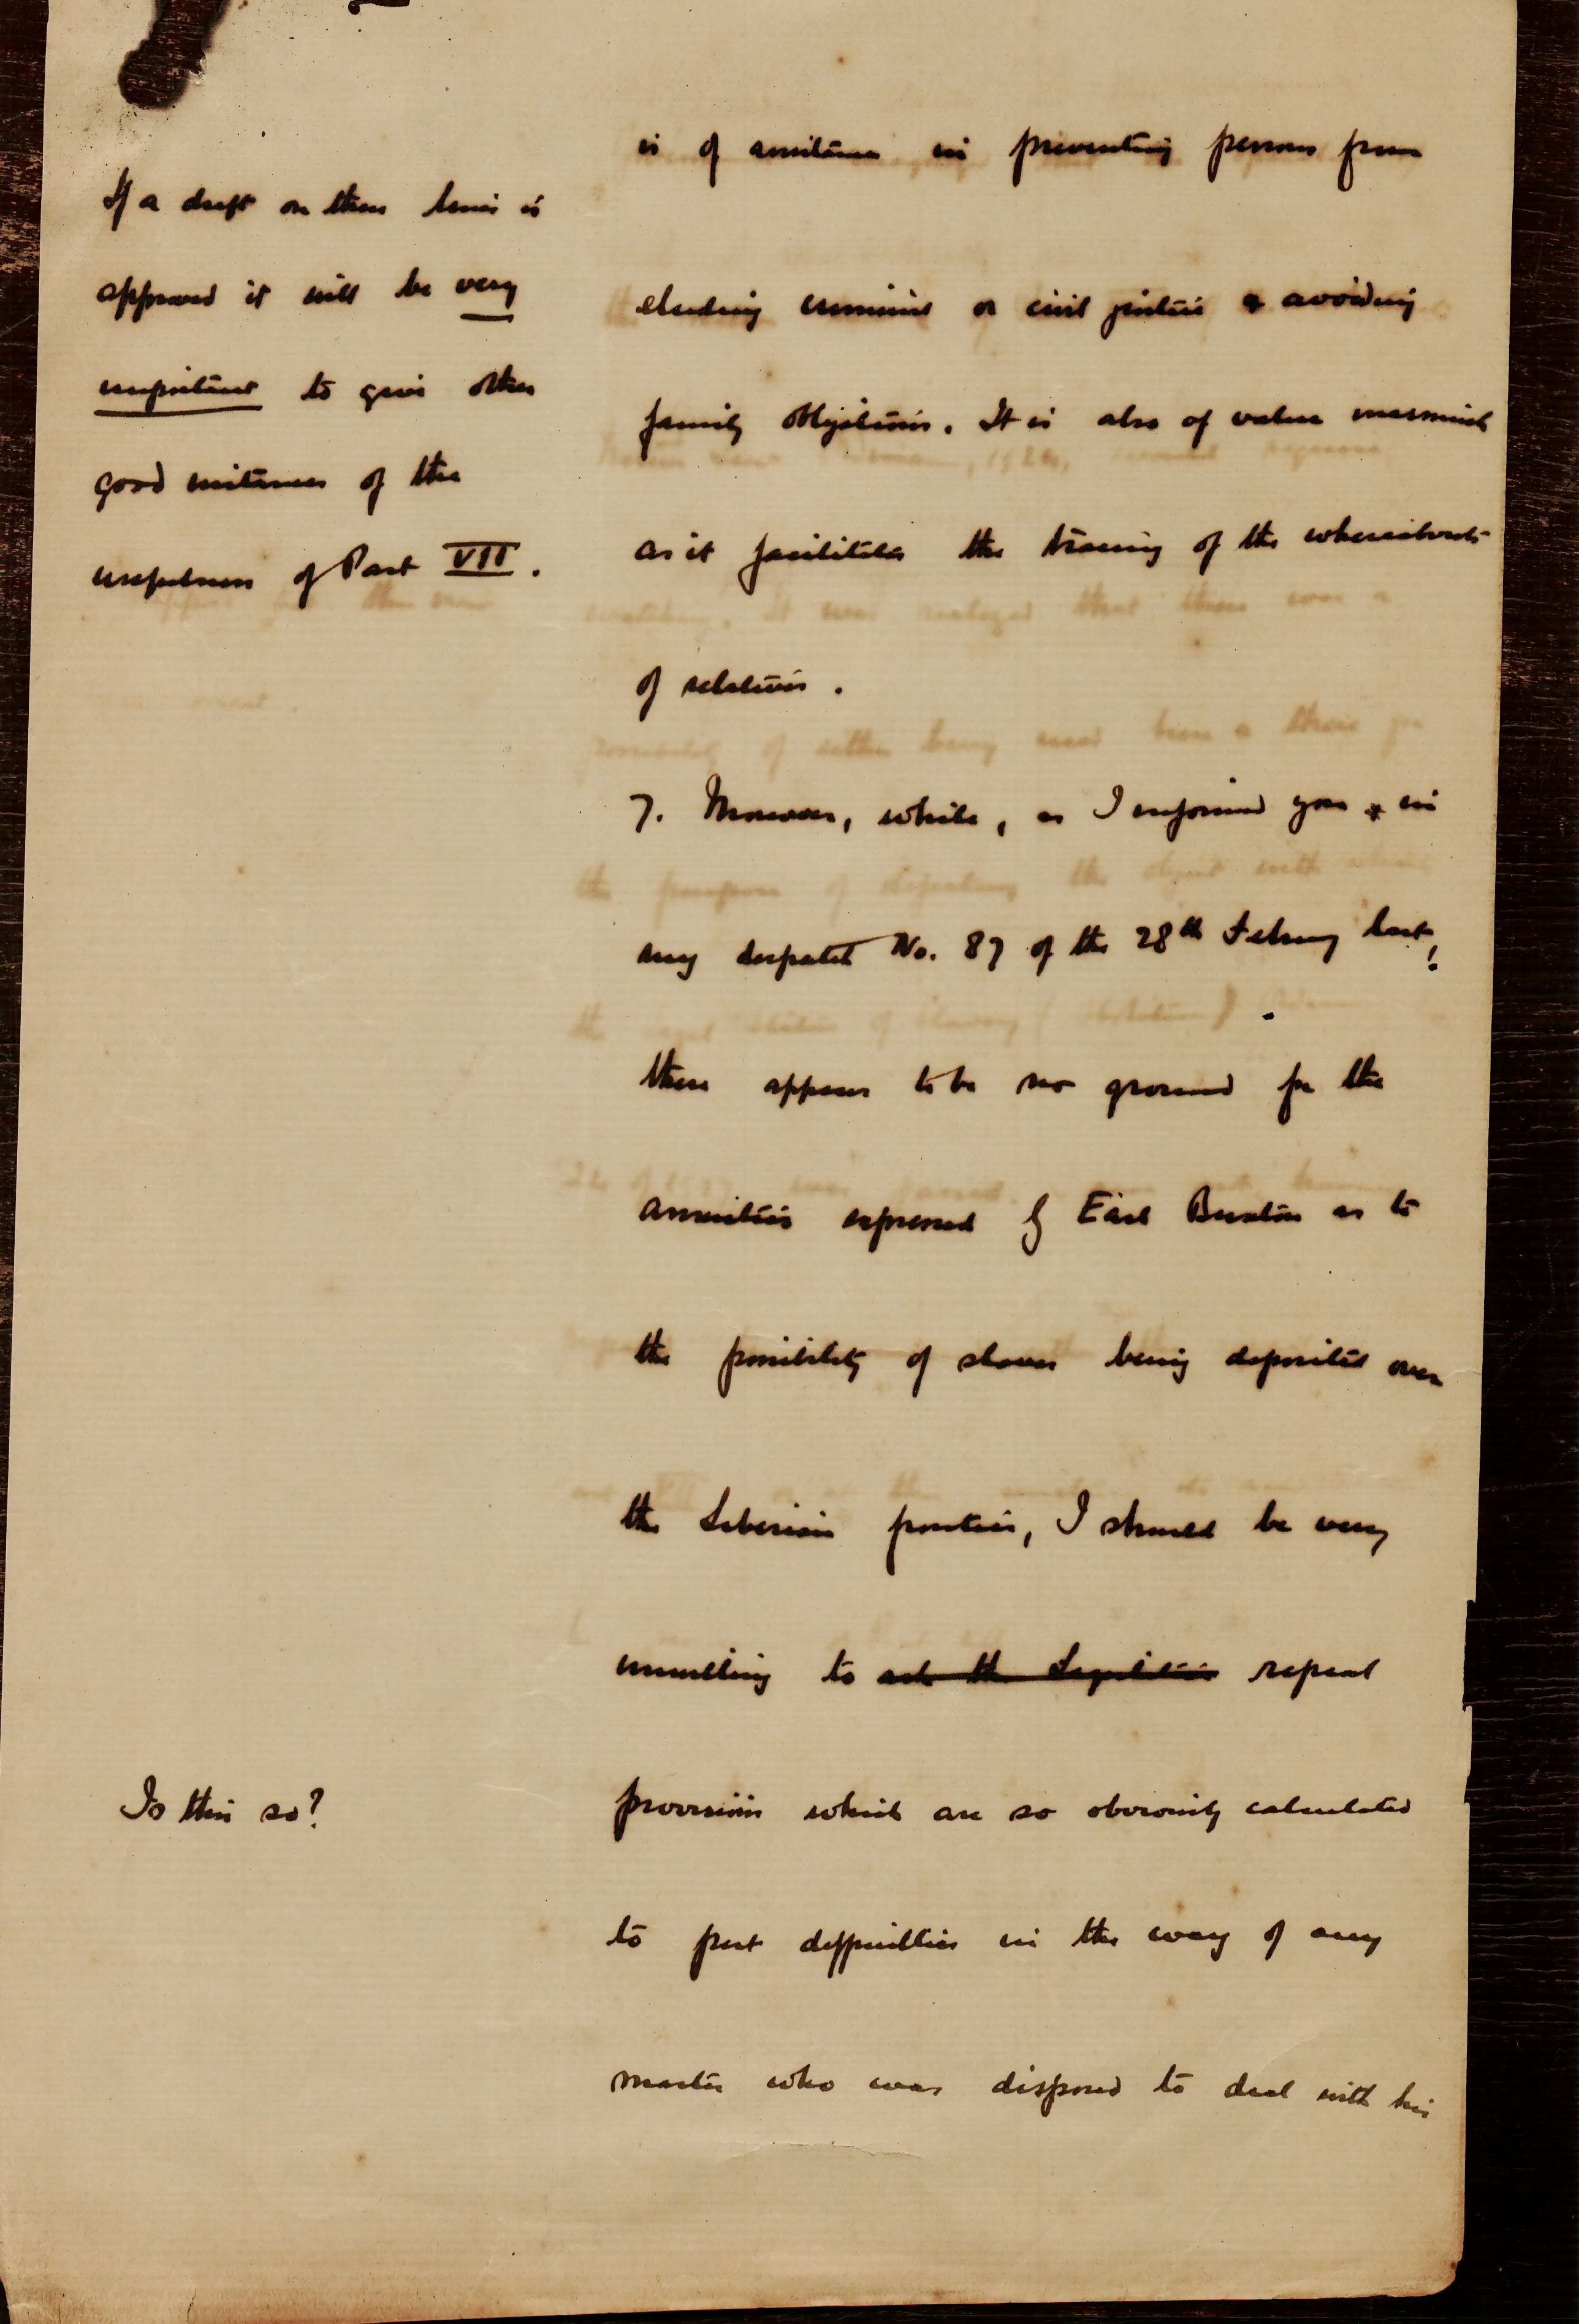 If a draft on these lines is
approved it will be very
important to give other
good instances of the
usefulness of Part VII.
is of assistance in preventing persons from
eluding criminal or civil justice & avoiding
family obligations. It is also of value inasmuch
as it facilitates the tracing of the whereabouts
of relatives.
7. Moreover, while, as I informed you in
my despatch No. 87 of the 28th February last,
there appears to be no ground for the
anxieties expressed by Earl Buxton as to
the possibility of slaves being deposited over
the Liberian frontier, I should be very
unwilling to ask the Legislature repeal
Is this so?
provisions which are so obviously calculated
to put difficulties in the way of any
master who was disposed to deal with his